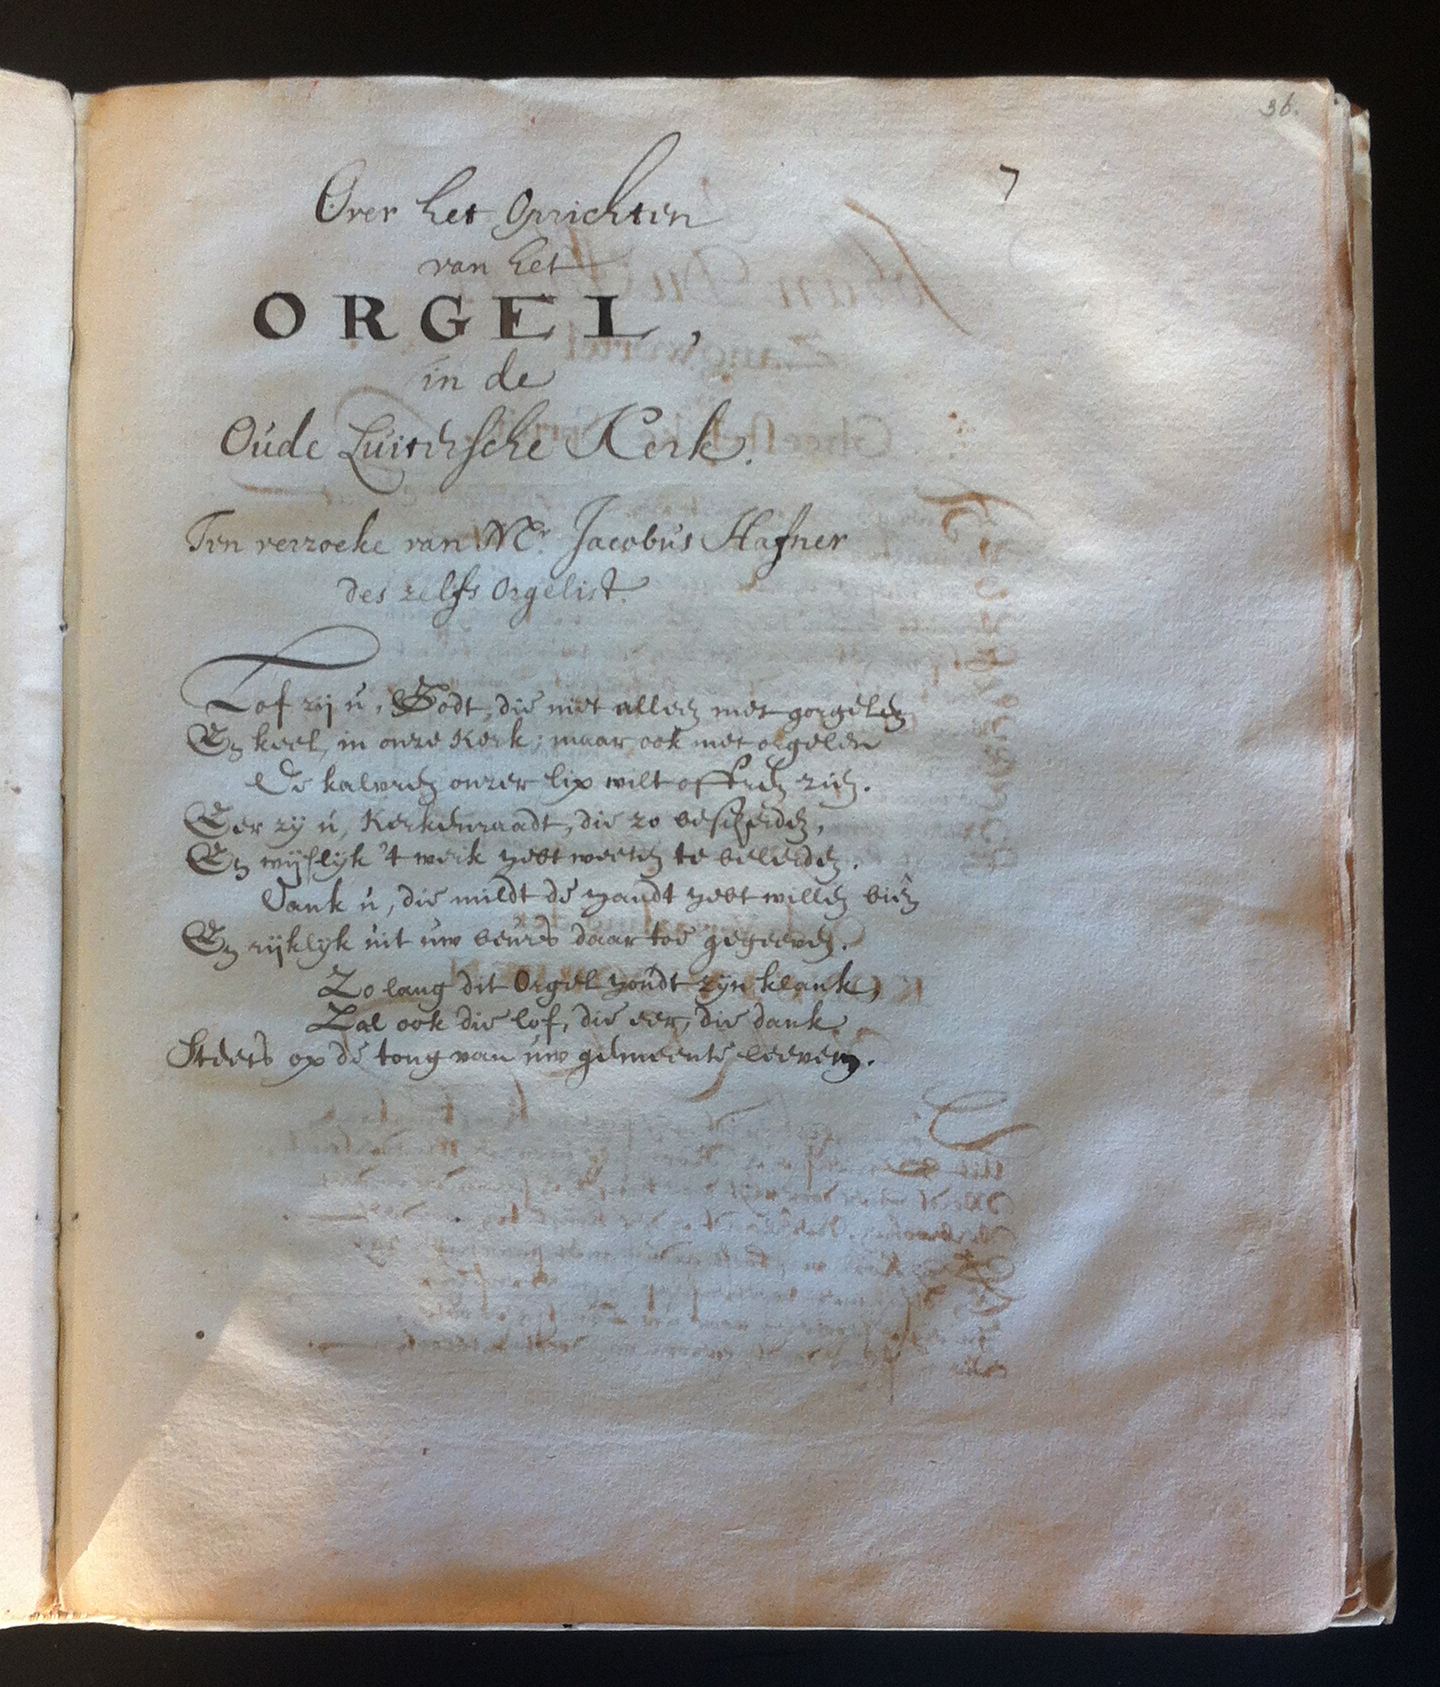 36.
7
Over het Oprichten
van het
ORGEL,
in de
Oude Luitersche Kerk.
Ten verzoeke van Mr. Jacobus Hafner
des zelfs Orgelist.
Lof zij u, Godt, die niet alleen met gorgelen
En keel, in onze Kerk; maar ook met orgelen
De kalvren onzer lip wilt offren zien.
Eer zy u, Kerkenraadt, die zo bescheiden,
En wijslyk 't werk hebt weeten te beleiden.
Dank u, die mildt de handt hebt willen biên
En rijklyk uit uw beurs daar toe gegeeven.
Zo lang dit Orgel houdt zijn klank,
Zal ook die lof, die eer, die dank
Steets op de tong van uw gemeente leeven.